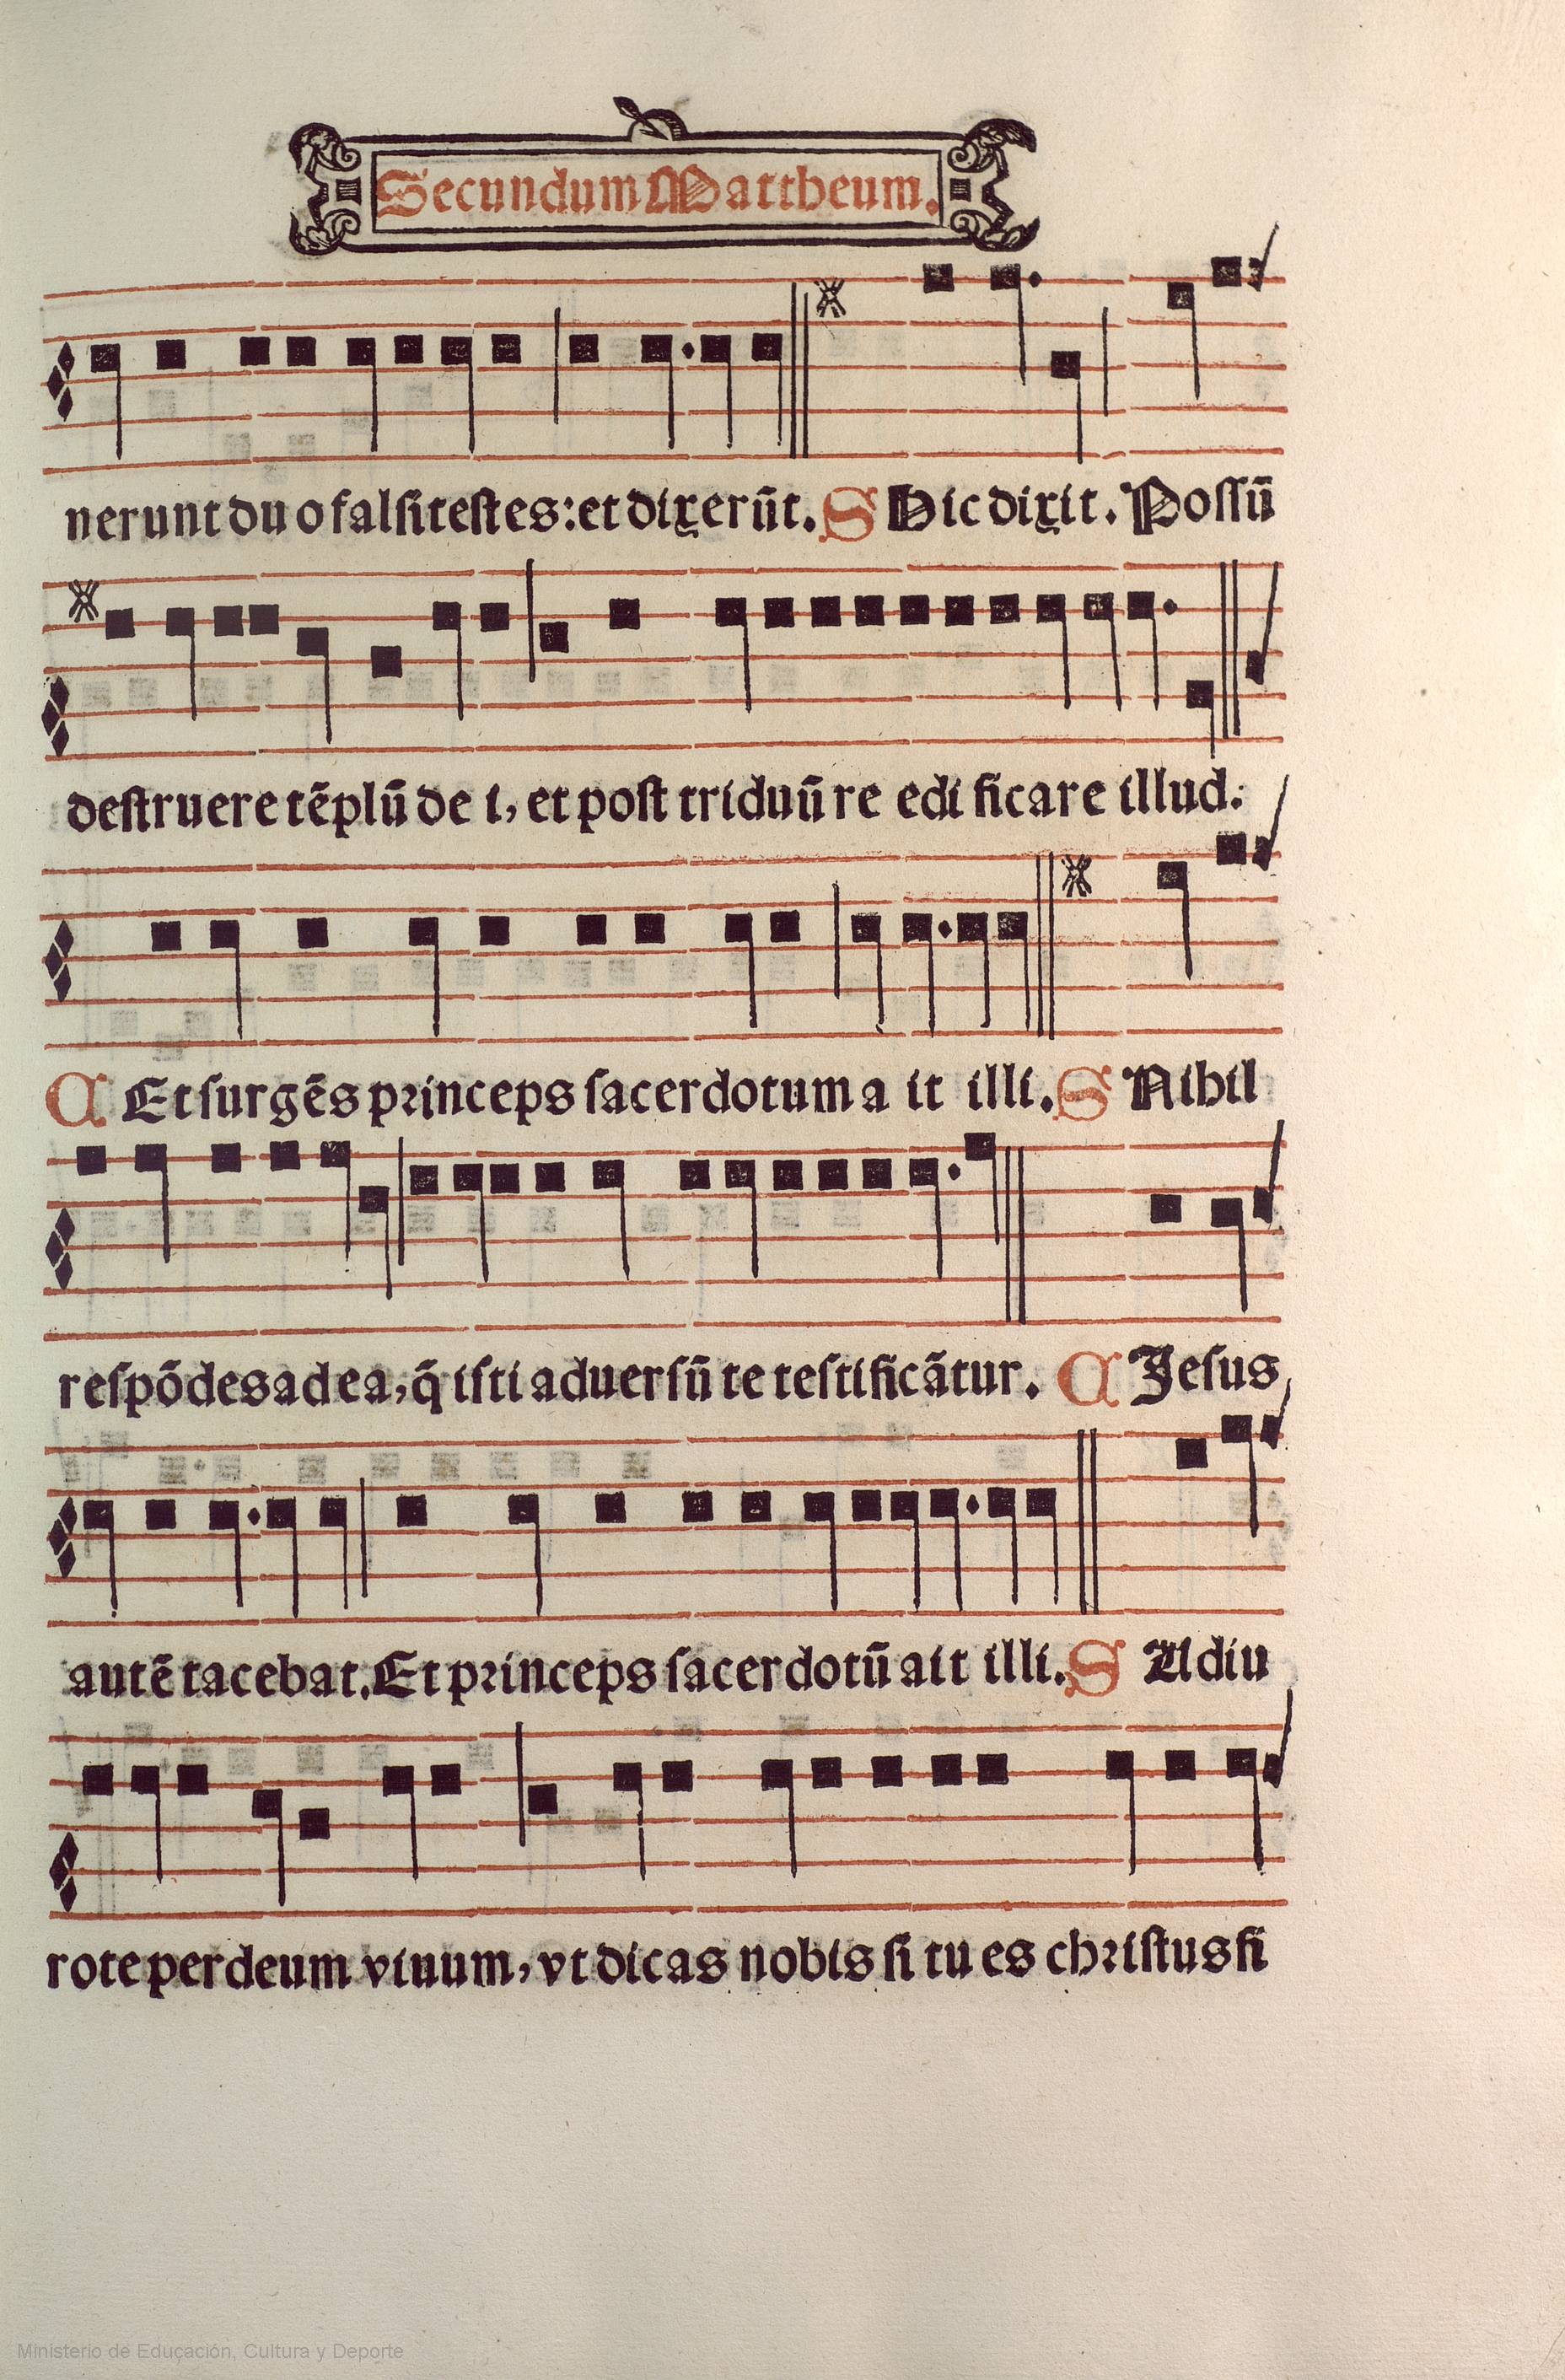 Secundum Mattheum.
nerunt duo falsi testes: et dixerūt. S Hic dixit. Possū
destruere tēplū dei, et post triduū reedificare illud.
C Et surgēs princeps sacerdotum ait illi. S Nihil
respōdes ad ea, q̄ isti aduersū te testificātur. C Jesus
autē tacebat. Et princeps sacerdotū ait illi. S Adiu
ro te per deum viuum, vt dicas nobis si tu es christus fi
Ministerio de Educación, Cultura y Deporte